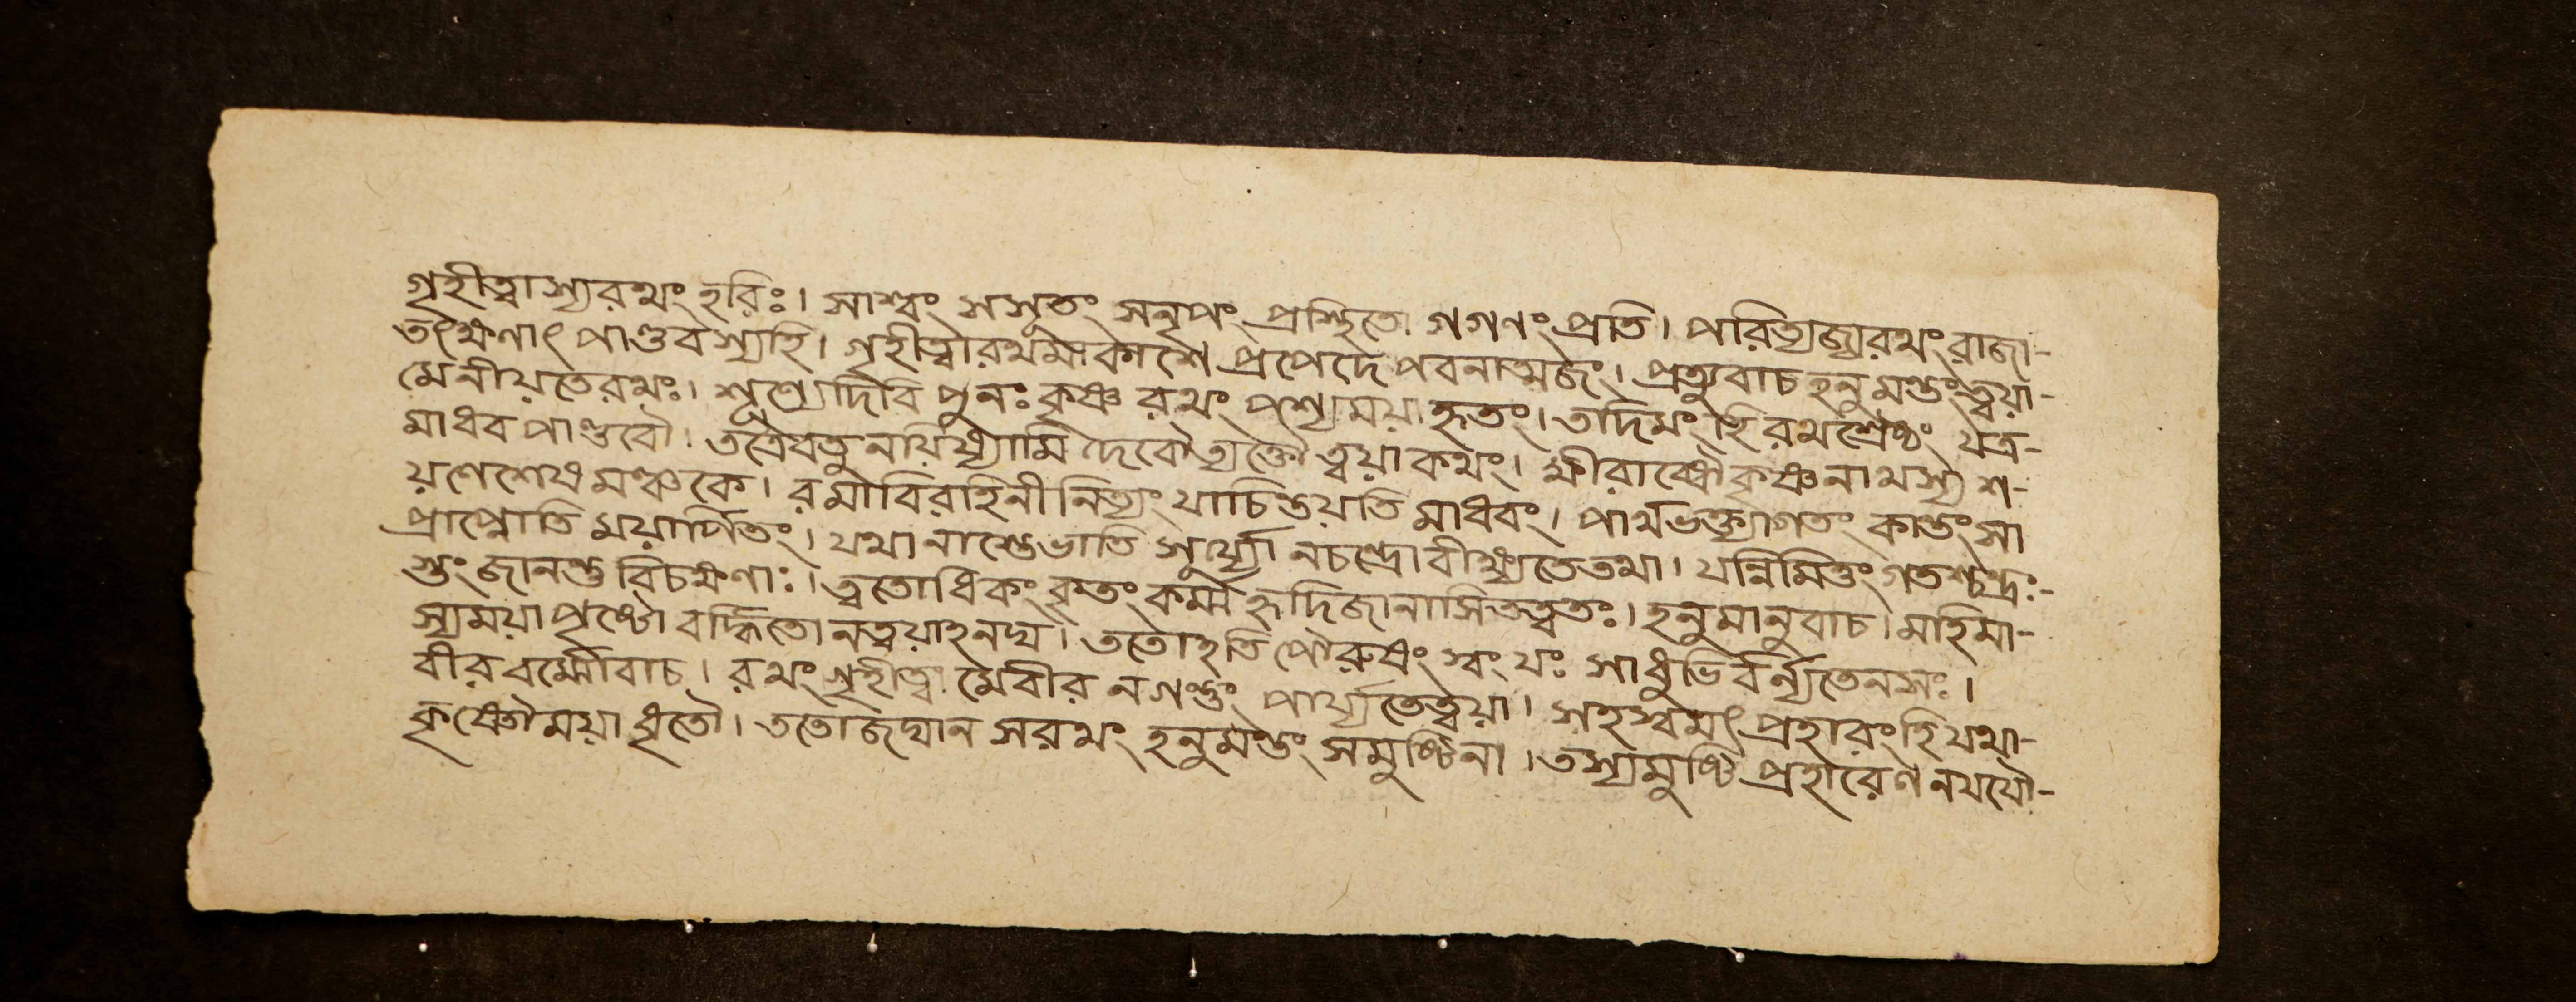 গৃহীত্বাস্যরথং হরিঃ। সাশ্বং সসূতং সনৃপং প্রস্থিতো গগণং প্রতি। পরিত্যজ্যরথং রাজা-
তৎক্ষণাৎ পাণ্ডবস্যহি। গৃহীত্বারথমাকাশে প্রপেদে পবনাত্মজং। প্রত্যুবাচ হনুমন্তং ত্বয়া-
মেনীয়তেরথঃ। শূণ্যেদিবি পুনঃ কৃষ্ণ রথং পশ্যেময়া হৃতং। তদিমং হি রথশ্রেষ্ঠং যত্র-
মাধব পাণ্ডবৌ। তত্রৈবতু নয়িষ্যামি দেবৌত্যক্তৌ ত্বয়া কথং। ক্ষীরাব্ধৌ কৃষ্ণনাথস্য শ-
য়ণেশেষ মঞ্চকে। রমাবিরাহিনী নিত্যং যাচিন্তয়তি মাধবং। পার্থভক্ত্যাগতং কান্তং সা
প্রাপ্নোতি ময়ার্পিতং। যথা নাস্তেভাতি সূর্য্যো নচন্দ্রো বীক্ষ্যতেতথা। যন্নিমিত্তং গতশ্চন্দ্রঃ-
স্তং জানন্ত বিচক্ষণাঃ। ত্বতোধিকং কৃতং কর্ম্ম হৃদিজানাসিতত্বতঃ। হনুমানুবাচ। মহিমা-
স্যময়া পৃষ্টো বর্দ্ধিতো নত্বয়াহনঘ। ততোহতি পৌরুষং স্বং যঃ সাধুভি র্বর্ন্যতেনসঃ।
বীরবর্ম্মোবাচ। রথং গৃহীত্বা মেবীর নগন্তুং পার্য্যতেত্বয়া। সহস্বমৎ প্রহারং হি যথা-
কৃষ্ণৌময়া ধৃতৌ। ততোজঘান সরথং হনুমন্তং সমুষ্টিনা। তস্যমুষ্টি প্রহারেণ নযযৌ-